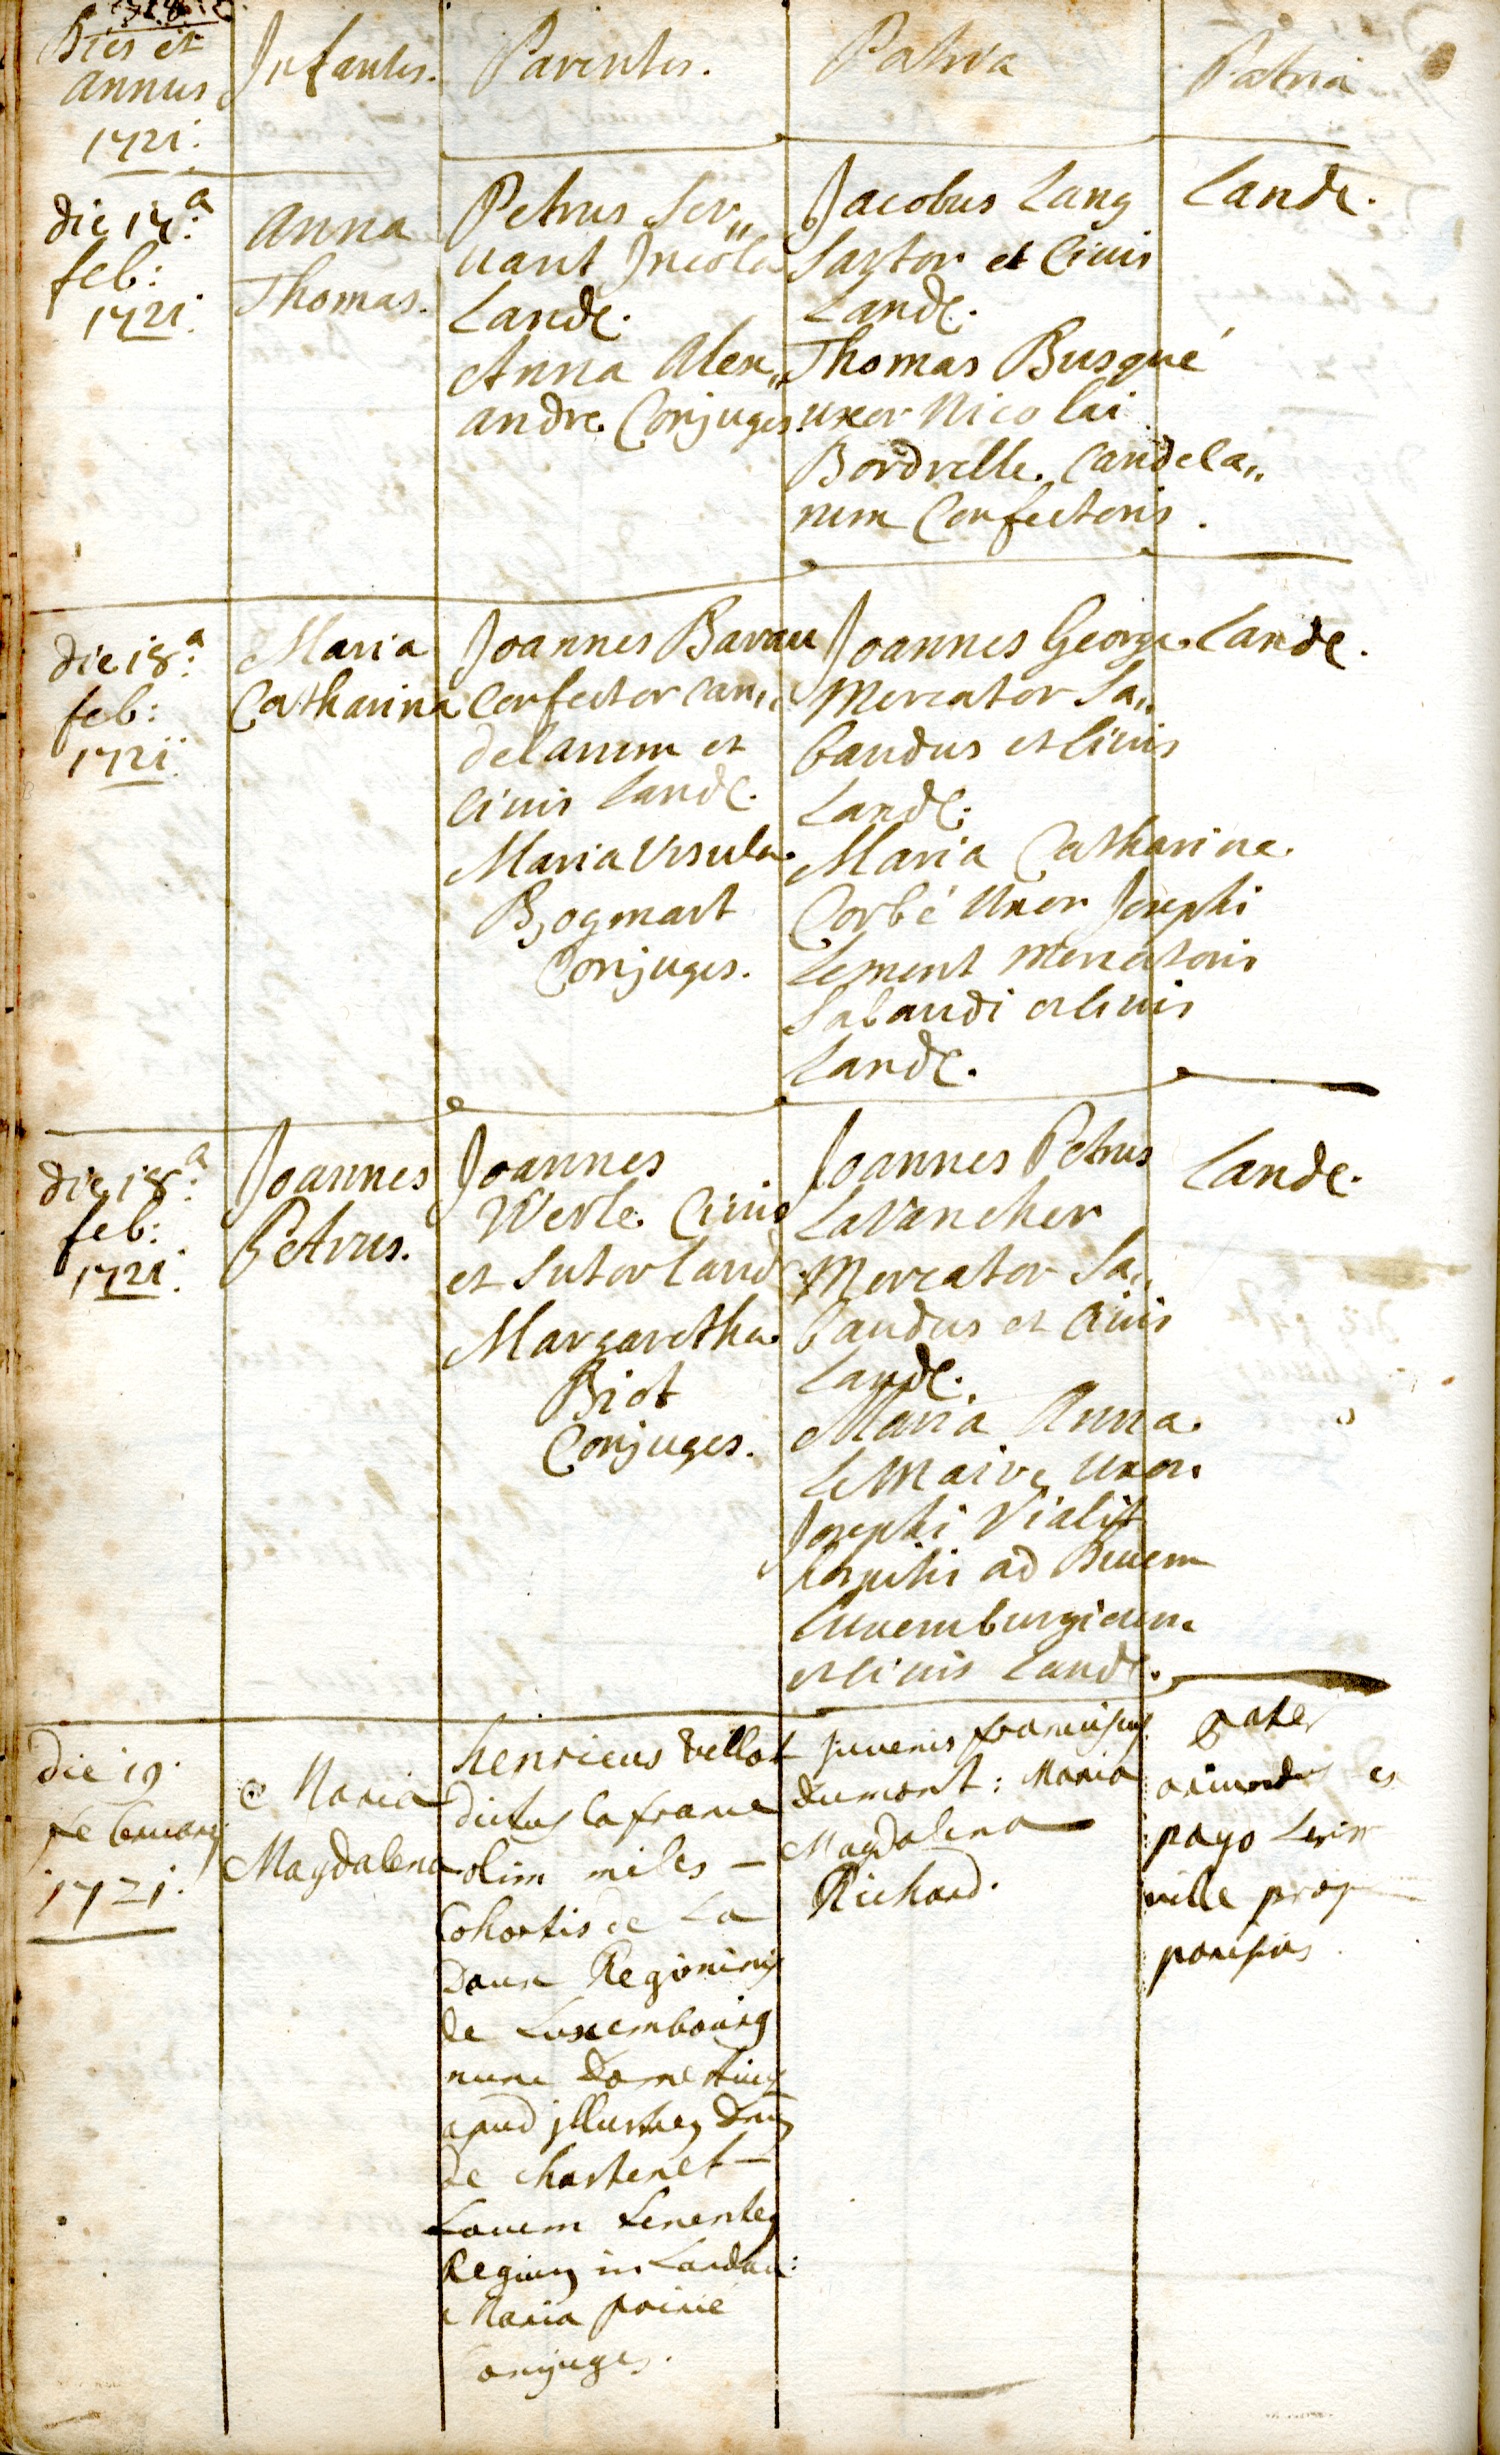 Dies et
annus
1721.
Infantes.
Parentes.
Patrini
Patria
die 17.a
feb:
1721.
Anna
Thomas.
Petrus Ser„
uant Incola
Landę.
Anna Alex„
andre Conjuges.
Jacobus Lang
Sartor et Ciuis
Landę.
Thomas Busqué
uxor Nicolai
Bordrelle Candela„
rum Confectoris.
Landę.
die 18.a
feb:
1721.
Maria
Catharina
Joannes Barau
Confector can„
delarum et
ciuis Landę.
Maria Vrsula
Bogmart
Conjuges.
Joannes George
Mercator Sa„
baudus et Ciuis
Landę.
Maria Catharina
Corbé Uxor Josephi
Lement Mercatoris
Sabaudi et Ciuis
Landę.
Landę.
die 18.a
feb:
1721.
Joannes
Petrus.
Joannes
Werle Ciuis
et Sutor Land
Margaretha
Biot
Conjuges.
Joannes Petrus
LaVancher
Mercator Sa„
baudus et Ciuis
Landę.
Maria Anna
LeMaire Uxor
Josephi Vialit
hospitis ad
Luxemburgicum
et ciuis Landę.
Landę.
Die 19.
februarij
1721.
Maria
Magdalena
henricus villot
dictus la france
olim miles —
Cohortis de La
Doux Regiminis
de Luxembourg
nunc Domesticus
apud jllustrem Dnum
de chastenet —
Regium in Landau:
Maria poirié
Conjuges.
juuenis franciscus
Dumont: Maria
Magdalena
Richard.
pater
oriundus ex
pago
ville prop
parisios.